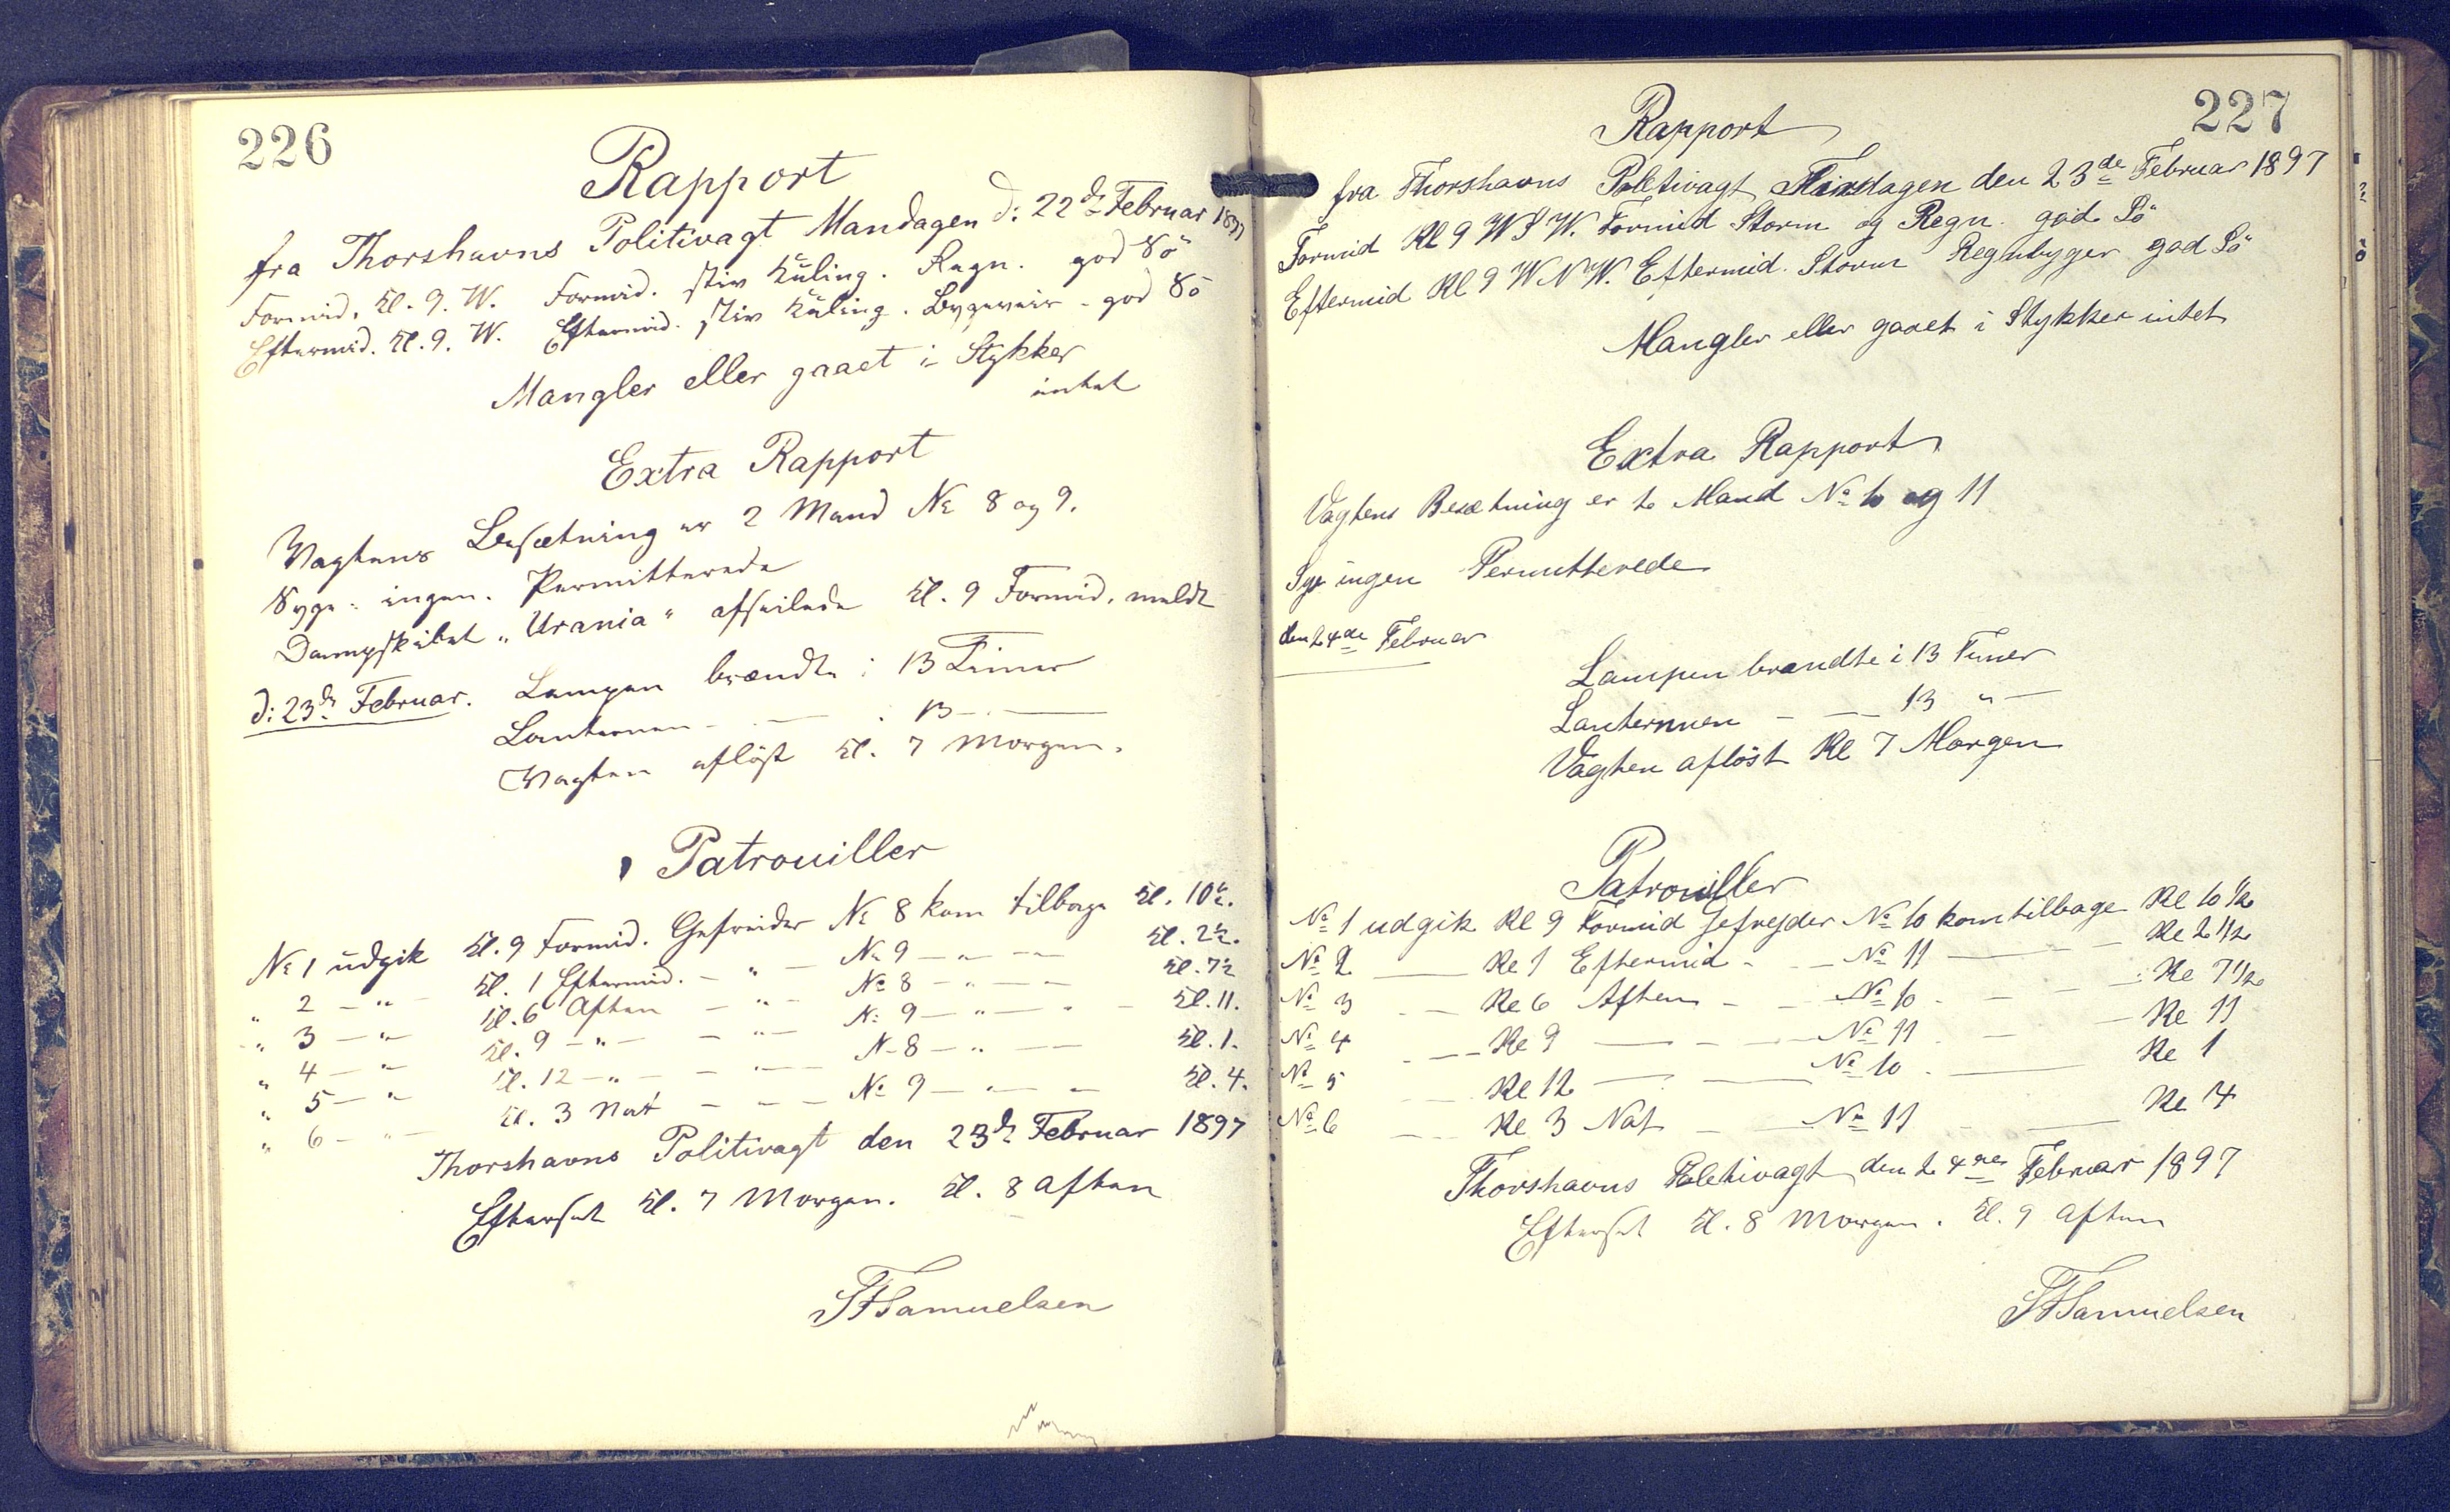 226
Rapport
fra Thorshavns Politivagt Mandagen d: 22de Februar 1897
Formid. Kl. 9. W. Formid. stiv Kuling. Regn. god Sö
Eftermid. Kl. 9. W. Eftermid. stiv Kuling. Bygeveir - god Sö
Mangler eller gaaet i Stykker
intet
Extra Rapport
Vagtens Besætning er 2 Mand № 8 og 9.
Syge: ingen. Permitterede
Dampskibet „Urania" afseilede Kl. 9 Formid. meldt
d: 23de Februar. Lampen brændte i 13 Timer
Lanternen - — . 13 - —
Vagten aflöst Kl. 7 Morgen.
Patrouiller
№ 1 udgik Kl. 9 Formid. Gefreider № 8 kom tilbage Kl. 10½.
„ 2 — „ — Kl. 1 Eftermid. — „ — № 9 — „ — — Kl. 2½.
„ 3 — „ Kl. 6 Aften — „ — № 8 — „ — — Kl. 7½
„ 4 — „ Kl. 9 — „ — — „ — № 9 — „ — - — Kl. 11.
„ 5 — „ Kl. 12 — „ — — „ — № 8 — „ — — Kl. 1.
„ 6 — „ — Kl. 3 Nat — — — № 9 — „ — — Kl. 4.
Thorshavns Politivagt den 23de Februar 1897
Efterset Kl. 7 Morgen. Kl. 8 Aften
SFSamuelsen
227
Rapport
fra Thorshavns Poletivagt Tirsdagen den 23de Februar 1897
Formid Kl 9 WSW. Formid Storm og Regn. god Sö
Eftermid Kl 9 WNW. Eftermid. Storm Regnbyger god Sö
Mangler eller gaaet i Stykker intet
Extra Rapport
Vagtens Besætning er to Mand № 10 og 11
Syge ingen Permitterede
den 24de Februar
Lampen brandte i 13 Timer
Lanternnen - — 13 „ —
Vagten aflöst Kl 7 Morgen
Patrouiller
№ 1 udgik Kl 9 Formid Gefrejder № 10 kom tilbage Kl 10 1/2
№ 2 — Kl 1 Eftermid - - — № 11 — - — Kl 2 1/2
№ 3 - — Kl 6 Aften — - — № 10 - — - — Kl 7 1/2
№ 4 - — Kl 9 — - — № 11 - — — Kl 11
№ 5 - — Kl 12 — — № 10 - — Kl 1
№ 6 — - Kl 3 Nat — — № 11 — — Kl 4
Thorshavns Poletivagt den 24des Februar 1897
Efterset Kl. 8 Morgen. Kl. 9 Aften
SFSamuelsen